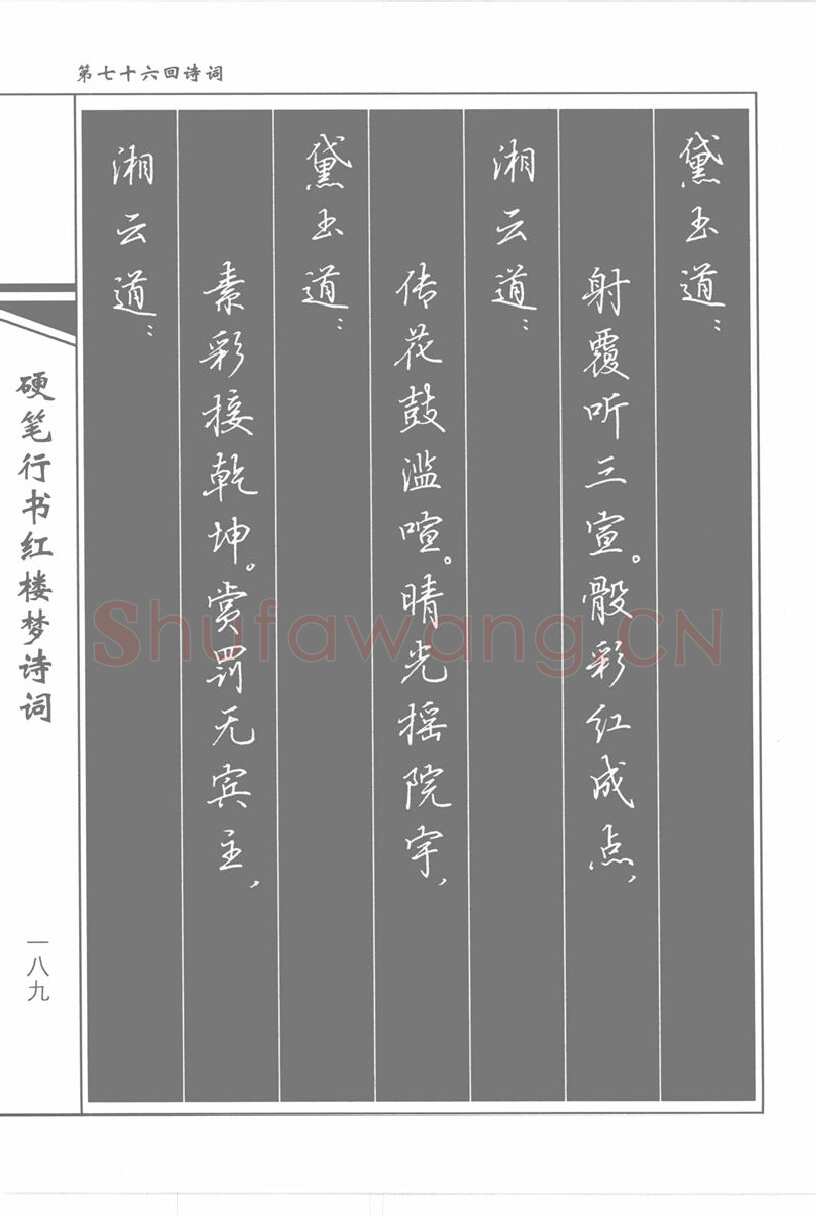 第七十六回诗词
黛玉道：
射覆听三宣。骰彩红成点，
湘云道：
传花鼓滥喧。晴光摇院宇，
黛玉道：
素彩接乾坤。赏罚无宾主，
湘云道：
硬笔行书红楼梦诗词
一八九
Shufawang.CN